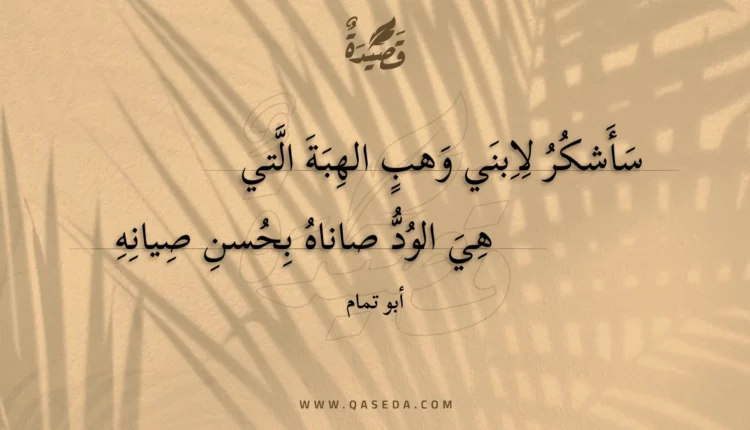 قَصيْدَةٌ
سَأَشكُرُ لِاِبنَي وَهبٍ الهِبَةَ الَّتي
هِيَ الوُدُّ صاناهُ بِحُسنِ صِيانِهِ
أبو تمام
WWW.QASEDA.COM